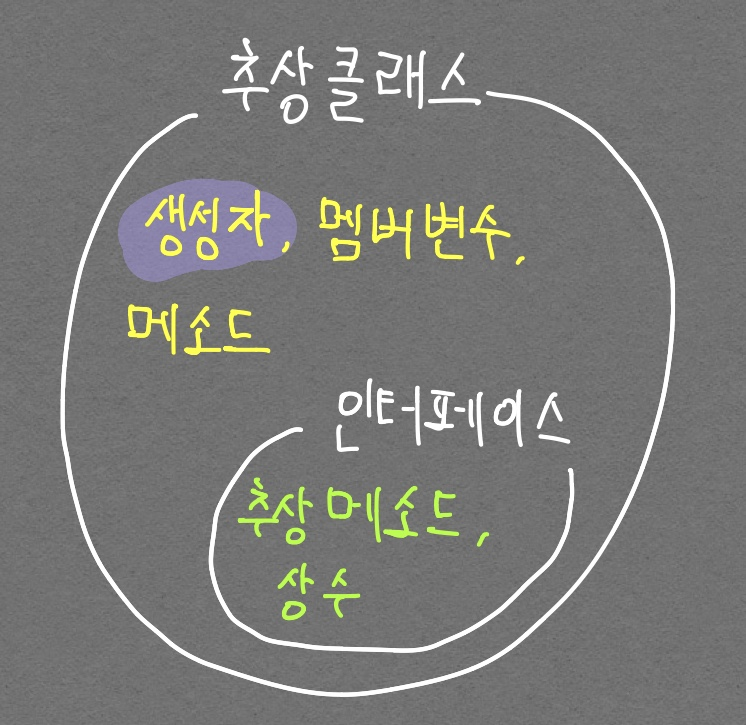 추상클래스
생성자, 멤버변수,
메소드
인터페이스
추상메소드,
상수